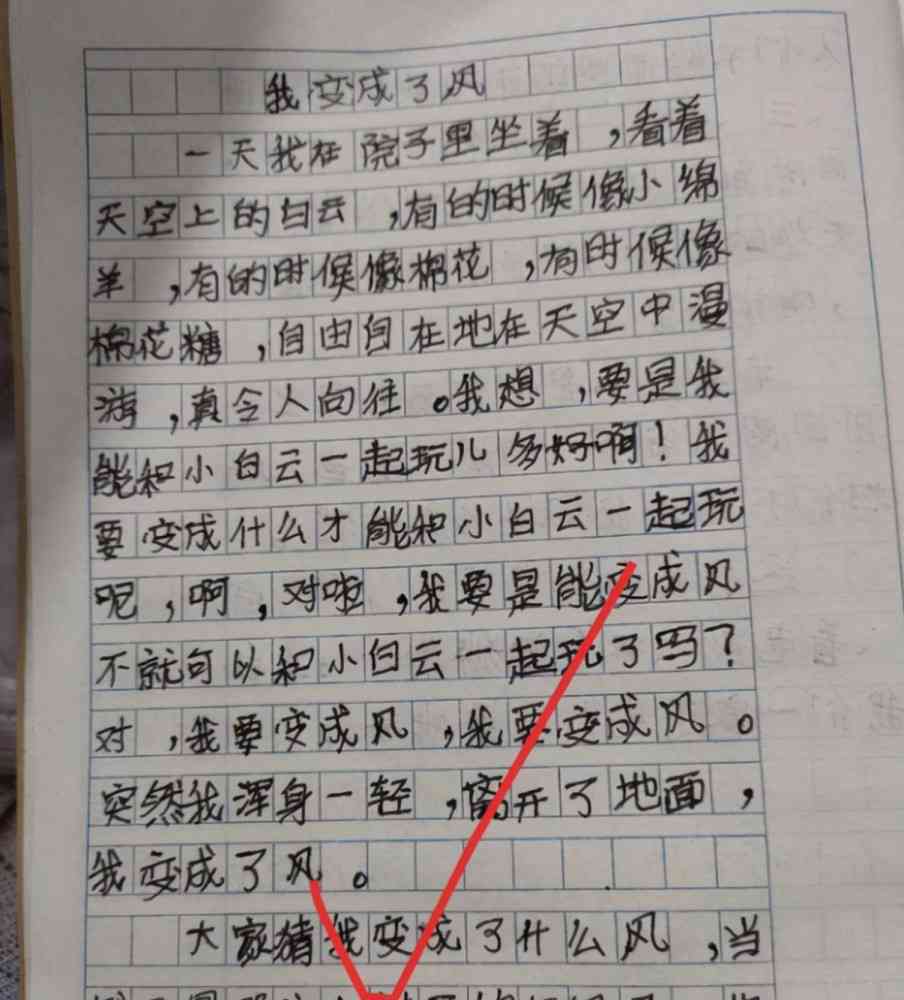 我变成了风
一天我在院子里坐着,看着
天空上的白云,有的时候像小绵
羊,有的时候像棉花,有时候像
棉花糖,自由自在地在天空中漫
游,真令人向往。我想,要是我
能和小白云一起玩儿多好啊!我
要变成什么才能和小白云一起玩
呢,啊,对啦,我要是能变成风
不就可以和小白云一起玩了吗?
对,我要变成风,我要变成风。
突然我浑身一轻,离开了地面,
我变成了风。
大家猜我变成了什么风,当